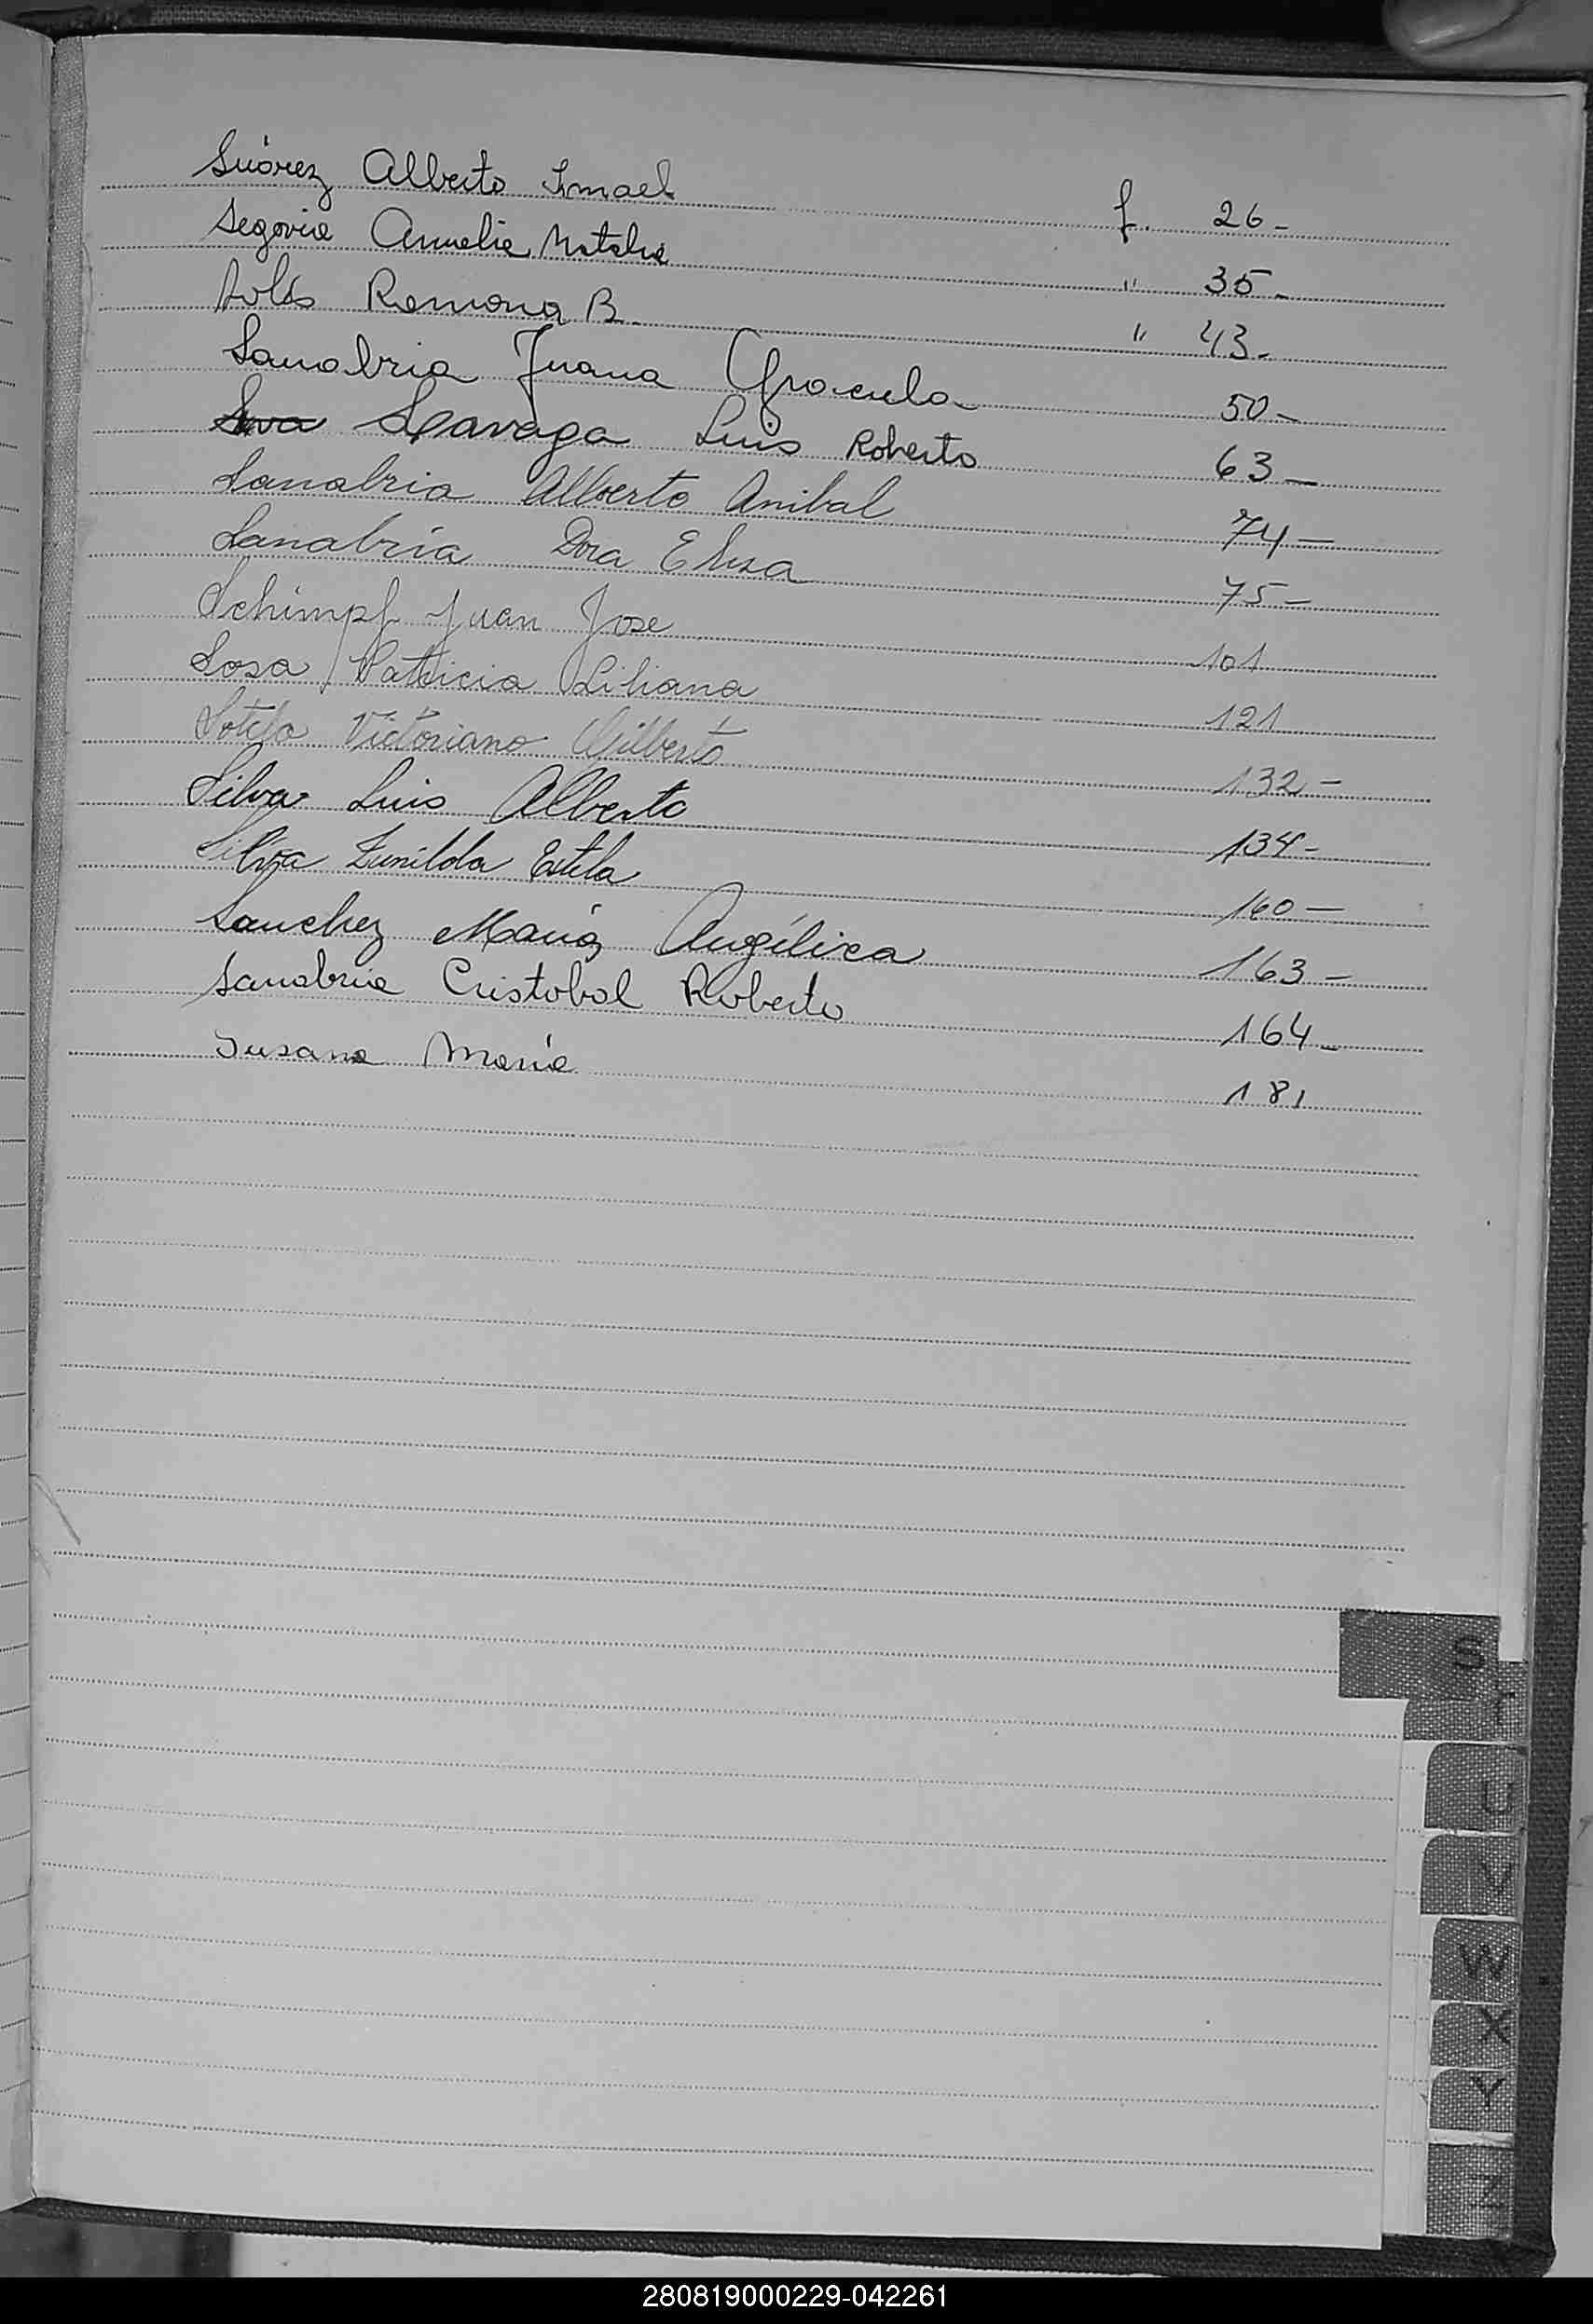 Suárez Alberto Ismael f. 26-
Segovia Amelia Natalia " 35-
Solís Ramona B. " 43-
Sanabria Juana Graciela 50-
Scavaga Luis Roberto 63-
Sanabria Alberto Anibal 74-
Sanabria Dora Elisa 75-
Schimpf Juan Jose 101
Sosa Patricia Liliana 121
Sotelo Victoriano Gilberto 132-
Silva Luis Alberto 134-
Silva Zunilda Estela 160-
Sanchez María Angélica 163-
Sanabria Cristobal Roberto 164-
Susana María 181
S
T
U
V
W
X
Y
Z
280819000229-042261